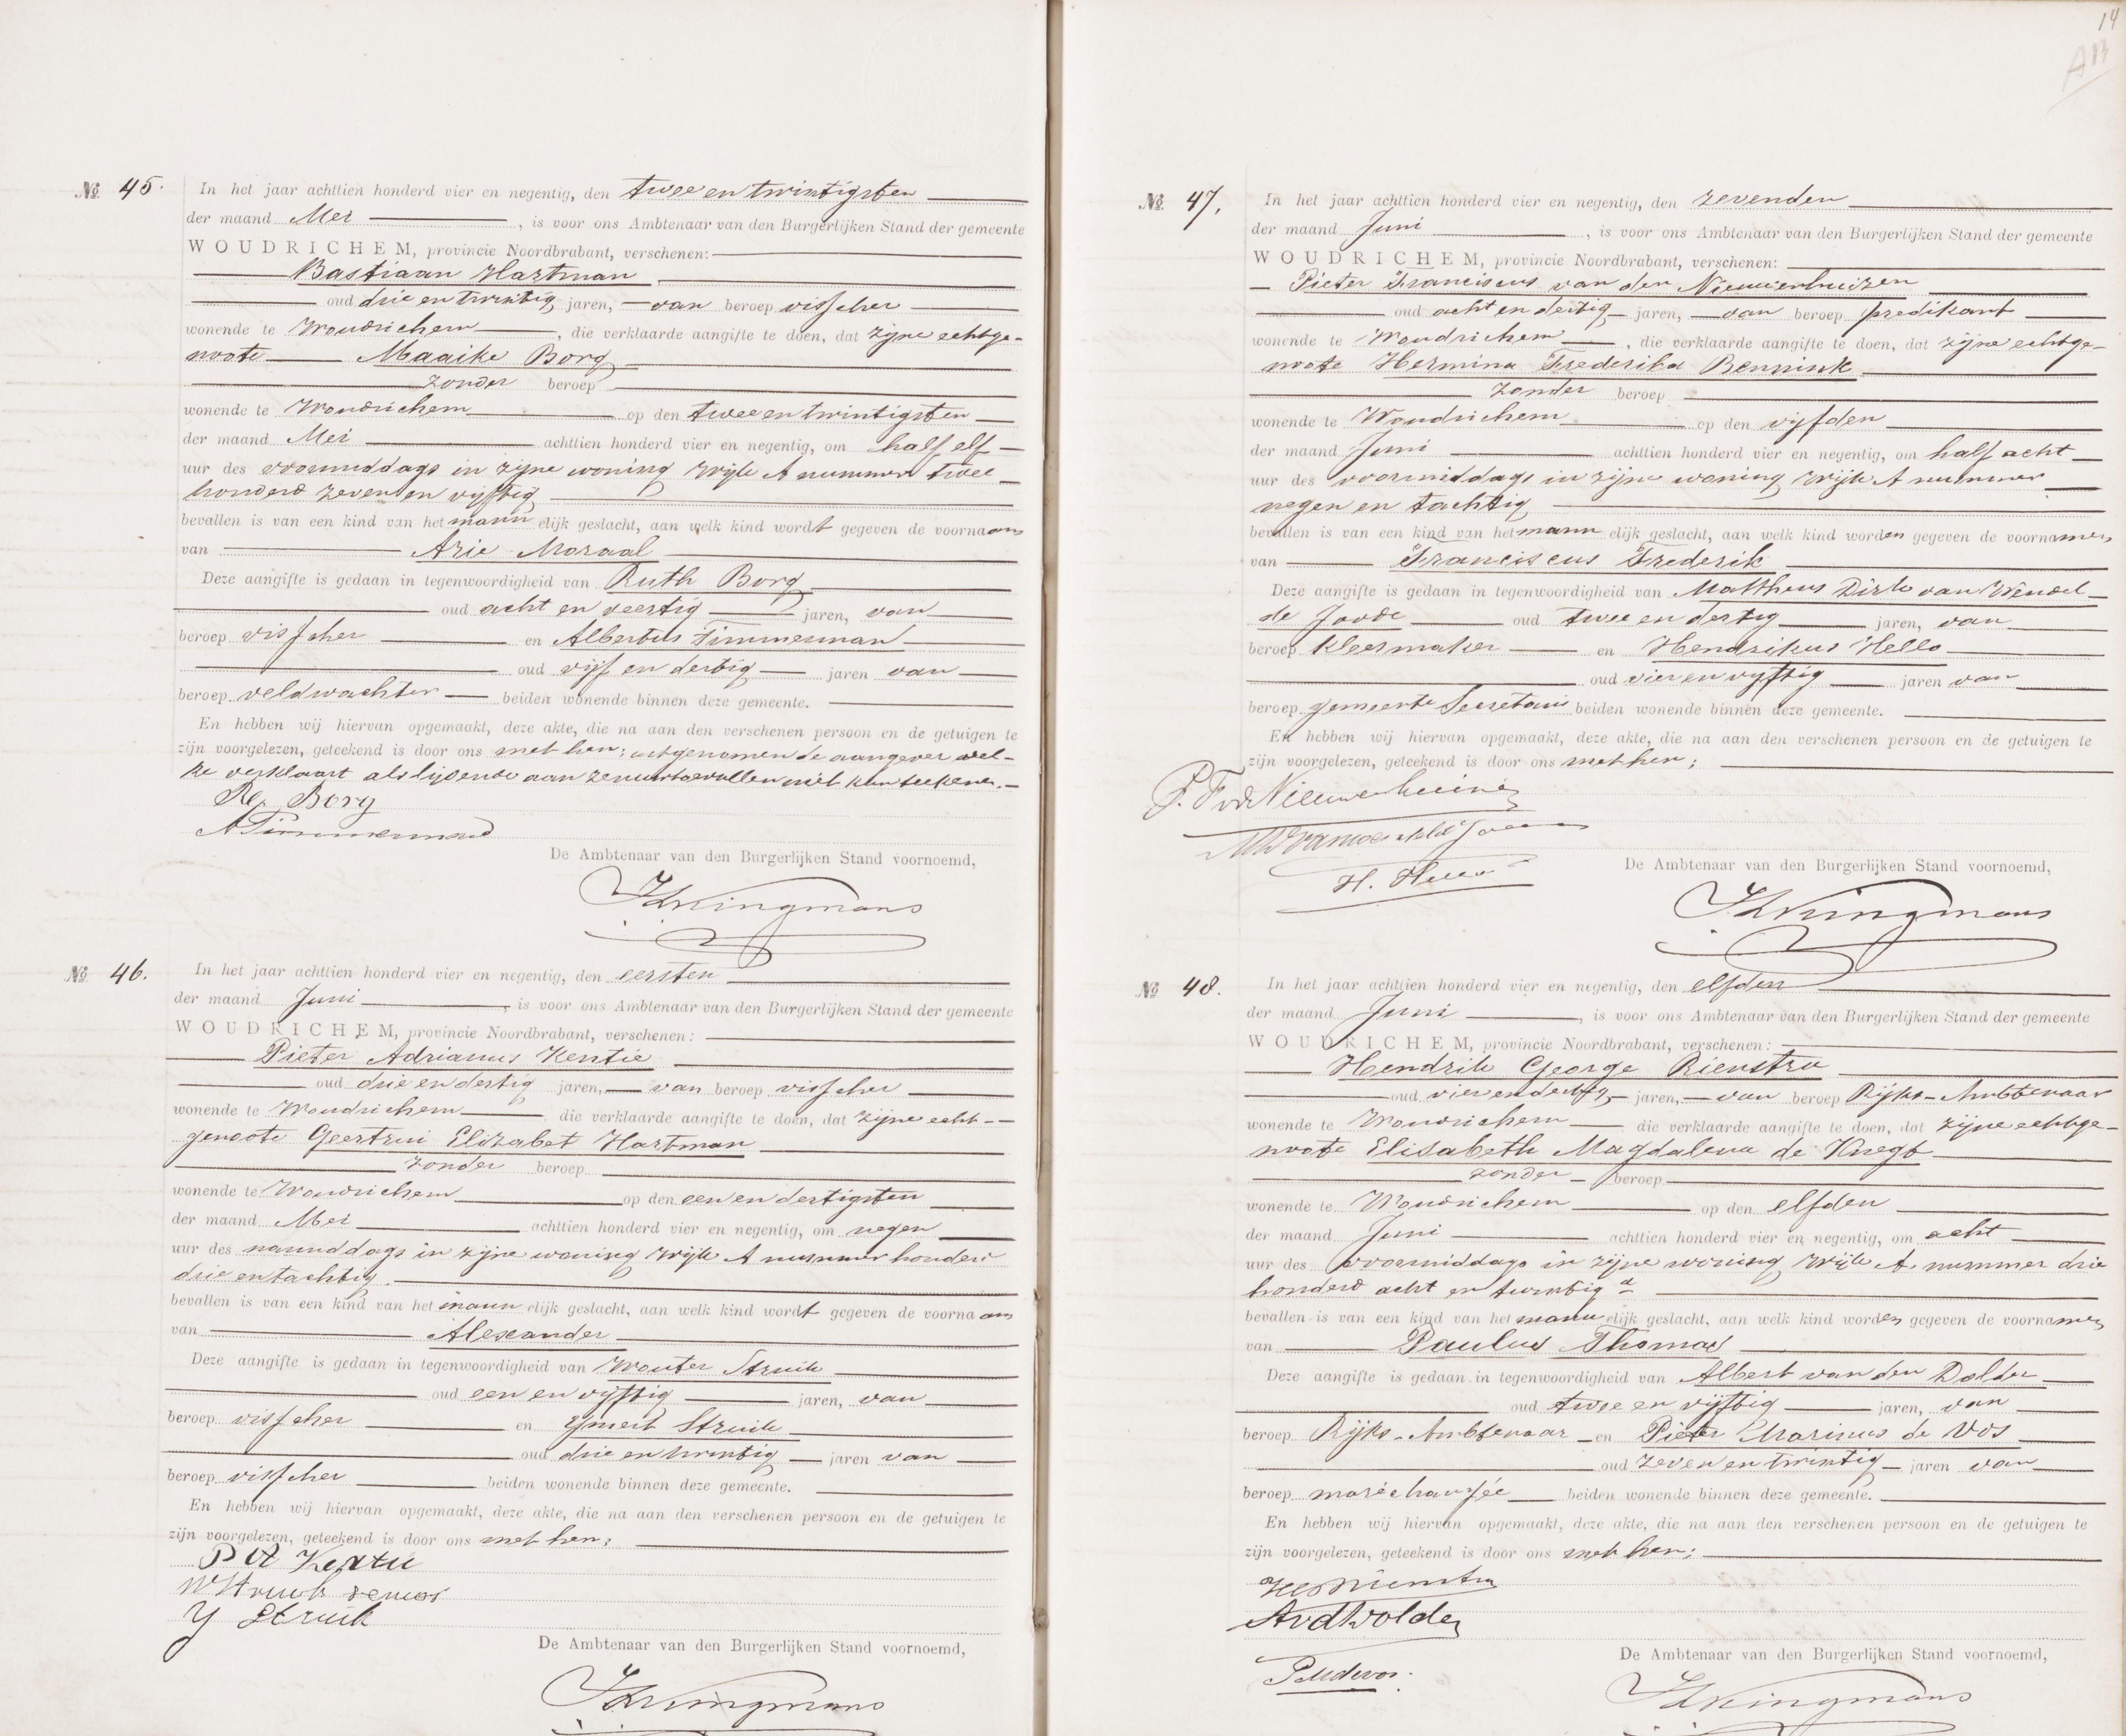 14
AB
No 45. In het jaar achttien honderd vier en negentig, den twee en twintigsten
der maand Mei, is voor ons Ambtenaar van den Burgerlijken Stand der gemeente
WOUDRICHEM, provincie Noordbrabant, verschenen:
Bastiaan Hartman
oud drie en twintig jaren, van beroep visscher
wonende te Woudrichem, die verklaarde aangifte te doen, dat zijne echtge-
noote Maaike Borg
zonder beroep
wonende te Woudrichem op den twee en twintigsten
der maand Mei achttien honderd vier en negentig, om half elf
uur des voormiddags in zijne woning wijk A nummer twee
honderd zeven en vijftig
bevallen is van een kind van het mannelijk geslacht, aan welk kind wordt gegeven de voornaam
van Arie Moraal
Deze aangifte is gedaan in tegenwoordigheid van Ruth Borg
oud acht en veertig jaren, van
beroep visscher en Albertus Timmerman
oud vijf en dertig jaren van
beroep veldwachter beiden wonende binnen deze gemeente.
En hebben wij hiervan opgemaakt, deze akte, die na aan den verschenen persoon en de getuigen te
zijn voorgelezen, geteekend is door ons met hen; uitgenomen de aangever wel-
ke verklaart als lijdende aan zenuwtoevallen niet kan teekenen.
R. Borg
A Timmerman
De Ambtenaar van den Burgerlijken Stand voornoemd,
No 46. In het jaar achttien honderd vier en negentig, den eersten
der maand Juni, is voor ons Ambtenaar van den Burgerlijken Stand der gemeente
WOUDRICHEM, provincie Noordbrabant, verschenen:
Pieter Adrianus Kentie
oud drie en dertig jaren, van beroep visscher
wonende te Woudrichem die verklaarde aangifte te doen, dat zijne echt-
genoote Geertrui Elizabet Hartman
zonder beroep
wonende te Woudrichem op den een en dertigsten
der maand Mei achttien honderd vier en negentig, om negen
uur des namiddags in zijne woning wijk A nummer honderd
drie en tachtig.
bevallen is van een kind van het mannelijk geslacht, aan welk kind wordt gegeven de voornaam
van Alexander
Deze aangifte is gedaan in tegenwoordigheid van Wouter Struik
oud een en vijftig jaren, van
beroep visscher en Struik
oud drie en twintig jaren van
beroep visscher beiden wonende binnen deze gemeente.
En hebben wij hiervan opgemaakt, deze akte, die na aan den verschenen persoon en de getuigen te
zijn voorgelezen, geteekend is door ons met hen;
P A Kentie
W Struik
Y Struik
De Ambtenaar van den Burgerlijken Stand voornoemd,
No 47. In het jaar achttien honderd vier en negentig, den zevenden
der maand Juni, is voor ons Ambtenaar van den Burgerlijken Stand der gemeente
WOUDRICHEM, provincie Noordbrabant, verschenen:
Pieter Franciscus van den Nieuwenhuizen
oud acht en dertig jaren, van beroep predikant
wonende te Woudrichem, die verklaarde aangifte te doen, dat zijne echtge-
noote Hermina Frederika Bennink
zonder beroep
wonende te Woudrichem op den vijfden
der maand Juni achttien honderd vier en negentig, om half acht
uur des voormiddags in zijne woning wijk A nummer
negen en tachtig
bevallen is van een kind van het mannelijk geslacht, aan welk kind worden gegeven de voornamen
van Franciscus Frederik
Deze aangifte is gedaan in tegenwoordigheid van Mattheus Dirk van Wendel
de Joode oud twee en dertig jaren, van
beroep kleermaker en Hendrikus Hello
oud vier en vijftig jaren van
beroep gemeente Secretaris beiden wonende binnen deze gemeente.
En hebben wij hiervan opgemaakt, deze akte, die na aan den verschenen persoon en de getuigen te
zijn voorgelezen, geteekend is door ons met hen;
H. Hello
De Ambtenaar van den Burgerlijken Stand voornoemd,
No 48. In het jaar achttien honderd vier en negentig, den elfden
der maand Juni, is voor ons Ambtenaar van den Burgerlijken Stand der gemeente
WOUDRICHEM, provincie Noordbrabant, verschenen:
Hendrik George Rienstra
oud vier en dertig jaren, van beroep Rijks-Ambtenaar
wonende te Woudrichem die verklaarde aangifte te doen, dat zijne echtge-
noote Elisabeth Magdalena de Knegt
zonder beroep
wonende te Woudrichem op den elfden
der maand Juni achttien honderd vier en negentig, om acht
uur des voormiddags in zijne woning wijk A. nummer drie
honderd acht en twintig a
bevallen is van een kind van het mannelijk geslacht, aan welk kind worden gegeven de voornamen
van Paulus Thomas
Deze aangifte is gedaan in tegenwoordigheid van Albert van den Dolder
oud twee en vijftig jaren, van
beroep Rijks-Ambtenaar en Pieter Marinus de Vos
oud zeven en twintig jaren van
beroep maréchaussée beiden wonende binnen deze gemeente.
En hebben wij hiervan opgemaakt, deze akte, die na aan den verschenen persoon en de getuigen te
zijn voorgelezen, geteekend is door ons met hen;
HG Rienstra
AvdDolder
PMdeVos.
De Ambtenaar van den Burgerlijken Stand voornoemd,